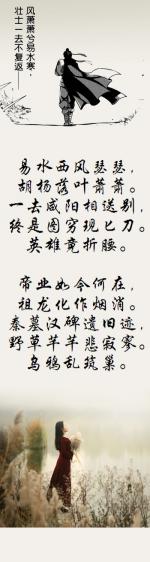 风萧萧兮易水寒，
壮士一去不复返——
易水西风瑟瑟，
胡杨落叶萧萧。
一去咸阳相送别，
终是图穷现匕刀。
英雄竟折腰。
帝业如今何在，
祖龙化作烟消。
秦墓汉碑遗旧迹，
野草芊芊悲寂寥。
乌鸦乱筑巢。